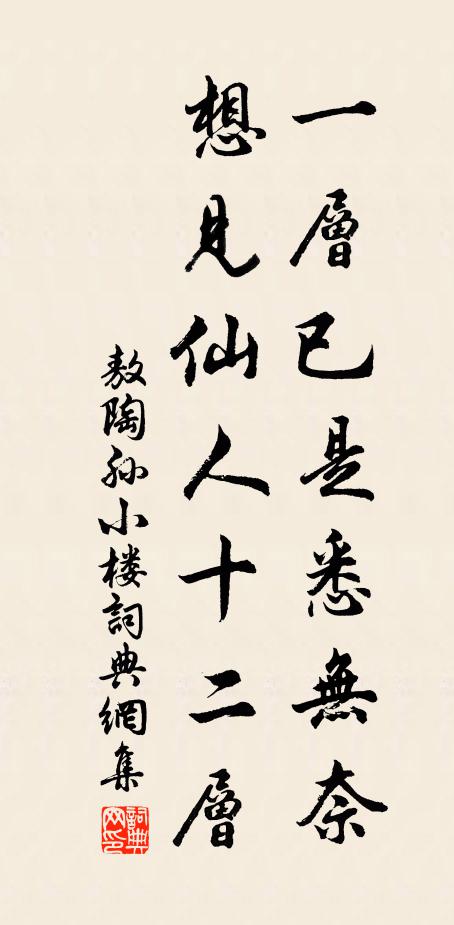 一層已是悉無奈
想見仙人十二層
敖陶孙小楼詞典網集
詞典网印